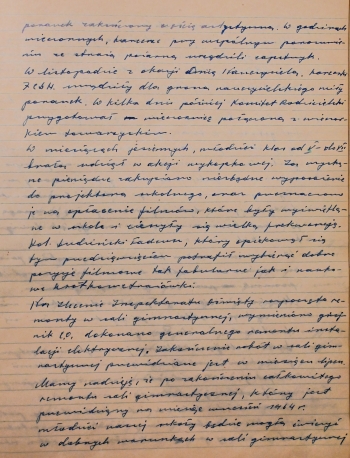 poranek zakończony częścią artystyczną. W godzinach
wieczornych, harcerze przy wspólnym porozumie-
niu ze strażą pożarną urządzili capstrzyk.
W listopadzie z okazji Dnia Nauczyciela, harcerki
Z.H.P. urządziły dla grona nauczycielskiego miły
poranek. W kilka dni później Komitet Rodzicielski
przygotował wieczornicę połączoną z wieczor-
kiem towarzyskim.
W miesiącach jesiennych, młodzież klas od V-do VII
brała udział w akcji wykopkowej. Za wyrta-
ne pieniądze zakupiono niezbędne wyposażenie
do projektora szkolnego, oraz przeznaczono
je na opłacenie filmów, które były wyświetla-
ne w szkole i cieszyły się wielką frekwencją.
Kol. Rudziński Tadeusz, który opiekował się
tym przedsięwzięciem potrafił wybierać dobre
pozycje filmowe tak fabularne jak i nauko-
we krótkometrażówki.
Na zlecenie Inspektoratu Oświaty rozpoczęto re-
monty w sali gimnastycznej, wymieniono grzej-
nik c.o. dokonano generalnego remontu insta-
lacji elektrycznej. Zakończenie robót w sali gim-
nastycznej przewidziane jest w miesiącu lipcu.
Mamy nadzieję, że po zakończeniu całkowitego
remontu sali gimnastycznej, który jest
przewidziany na miesiąc wrzesień 1964 r.
młodzież naszej szkoły będzie mogła ćwiczyć
w dobrych warunkach w sali gimnastycznej